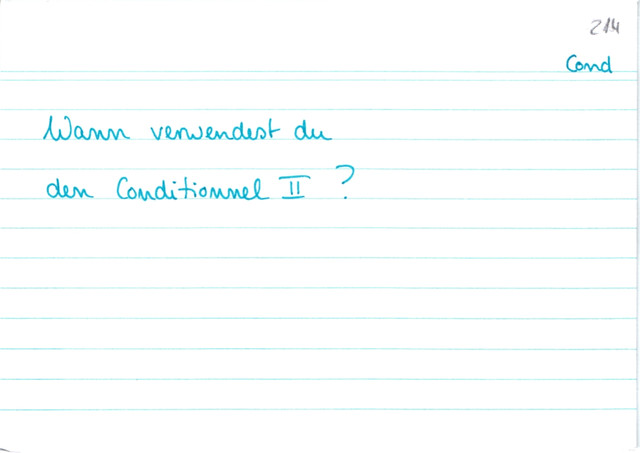 214
Cond
Wann verwendest du
den Conditionnel II ?